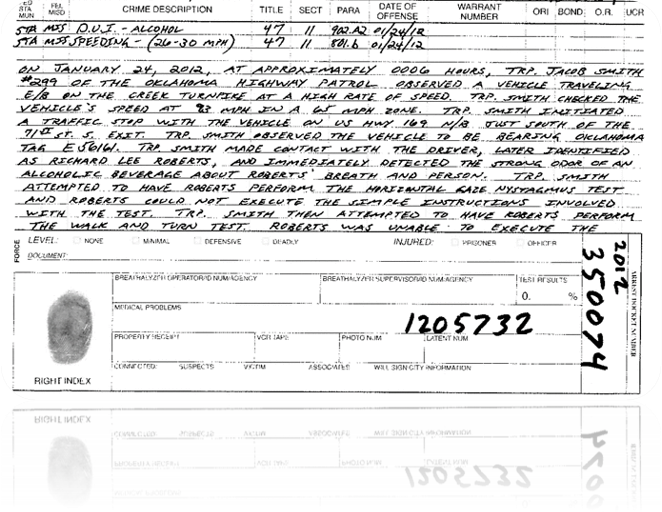 STA MUN
FEL MISD
CRIME DESCRIPTION TITLE SECT PARA DATE OF OFFENSE WARRANT NUMBER ORI BOND O.R. UCR
STA MIS D.U.I. - ALCOHOL 47 11 902.A2 01/24/12
STA MIS SPEEDING - (26-30 MPH) 47 11 801.b 01/24/12
ON JANUARY 24, 2012, AT APPROXIMATELY 0006 HOURS, TRP. JACOB SMITH
#299 OF THE OKLAHOMA HIGHWAY PATROL OBSERVED A VEHICLE TRAVELING
E/B ON THE CREEK TURNPIKE AT A HIGH RATE OF SPEED. TRP. SMITH CHECKED THE
VEHICLE'S SPEED AT 93 MPH IN A 65 MPH ZONE. TRP. SMITH INITIATED
A TRAFFIC STOP WITH THE VEHICLE ON US HWY 169 N/B JUST SOUTH OF THE
71ST ST. S. EXIT. TRP. SMITH OBSERVED THE VEHICLE TO BE BEARING OKLAHOMA
TAG E56161. TRP. SMITH MADE CONTACT WITH THE DRIVER, LATER IDENTIFIED
AS RICHARD LEE ROBERTS, AND IMMEDIATELY DETECTED THE STRONG ODOR OF AN
ALCOHOLIC BEVERAGE ABOUT ROBERTS' BREATH AND PERSON. TRP. SMITH
ATTEMPTED TO HAVE ROBERTS PERFORM THE HORIZONTAL GAZE NYSTAGMUS TEST
AND ROBERTS COULD NOT EXECUTE THE SIMPLE INSTRUCTIONS INVOLVED
WITH THE TEST. TRP. SMITH THEN ATTEMPTED TO HAVE ROBERTS PERFORM
THE WALK AND TURN TEST. ROBERTS WAS UNABLE TO EXECUTE THE
FORCE
LEVEL: NONE MINIMAL DEFENSIVE DEADLY INJURED: PRISONER OFFICER
DOCUMENT:
BREATHALYZER OPERATOR/ID NUM/AGENCY BREATHALYZER SUPERVISOR/ID NUM/AGENCY TEST RESULTS
0. %
MEDICAL PROBLEMS
1205732
PROPERTY RECEIPT VCR TAPE PHOTO NUM LATENT NUM
CONNECTED: SUSPECTS VICTIM ASSOCIATES WILL SIGN CITY INFORMATION
RIGHT INDEX
2012
350074
ARREST DOCKET NUMBER